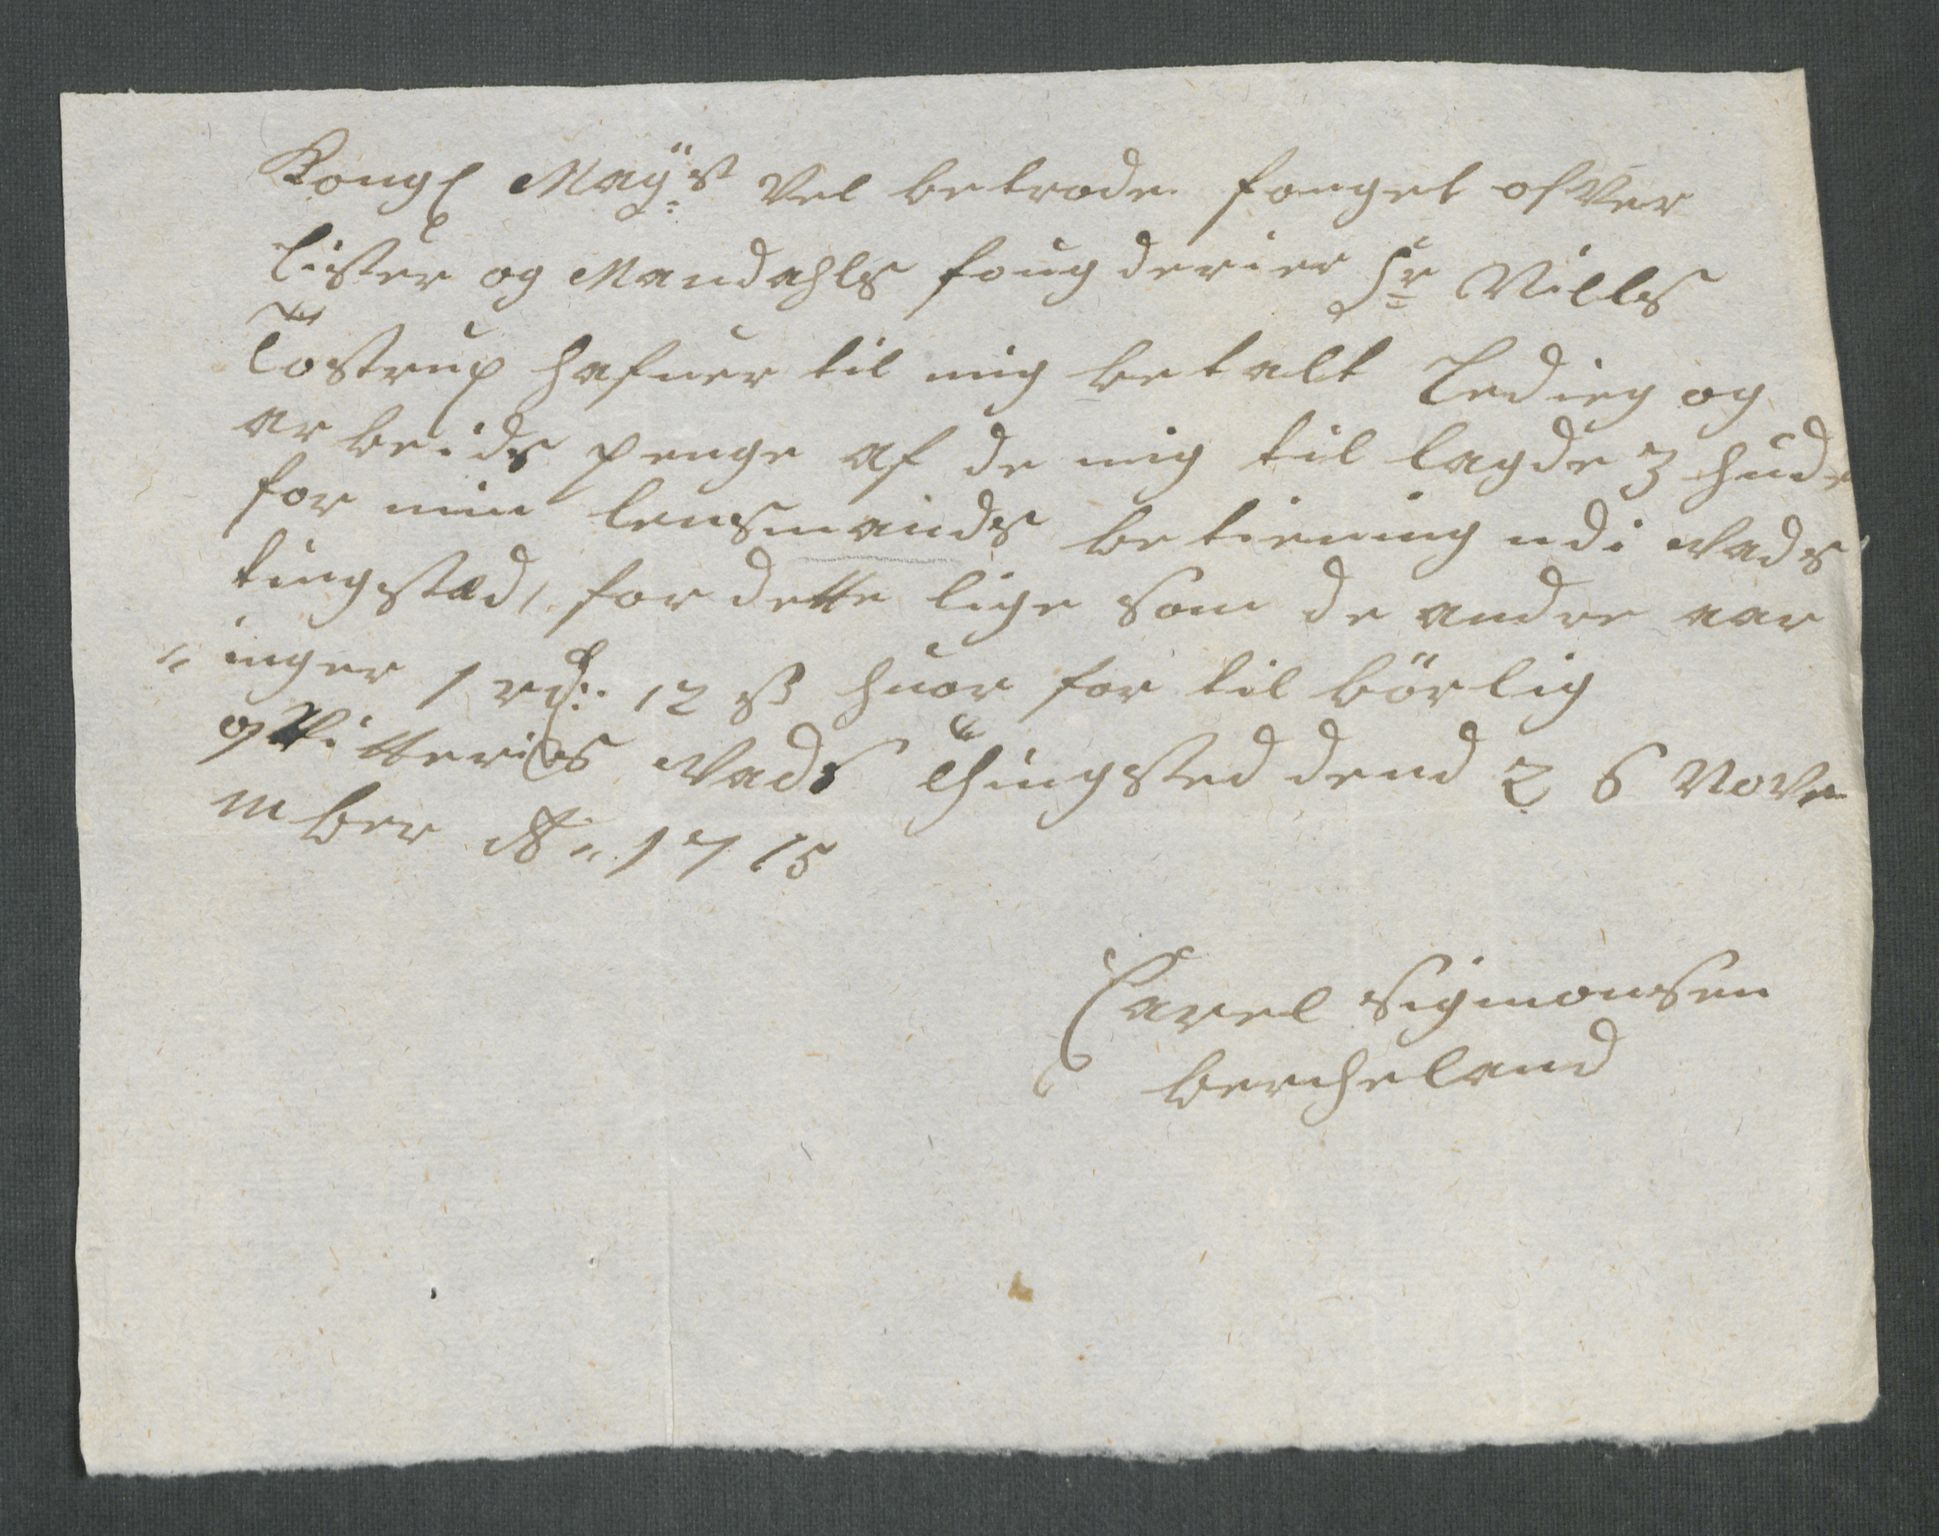 Kongl Mayts vel betrode fouget ofver
Lister og Mandahls fougderier Sr Nills
Tostrup hafuer til mig betalt Leding og
arbeids penge af de mig til lagde 3 hude
for min lensmands betiening udi Vads
tingstæd, for dette lige som de andre aar
inger 1 rd: 12 s huor for til börlig
qvitteris Vads Thingsted dend 26 Nove
mber Ao 1715
Carel Sigmonsen
bercheland